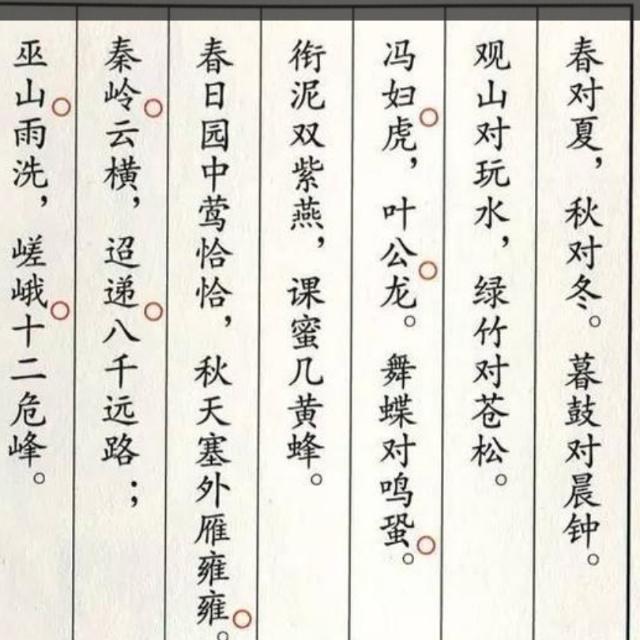 春对夏，秋对冬。暮鼓对晨钟。
观山对玩水，绿竹对苍松。
冯妇虎，叶公龙。舞蝶对鸣蛩。
衔泥双紫燕，课蜜几黄蜂。
春日园中莺恰恰，秋天塞外雁雍雍。
秦岭云横，迢递八千远路；
巫山雨洗，嵯峨十二危峰。